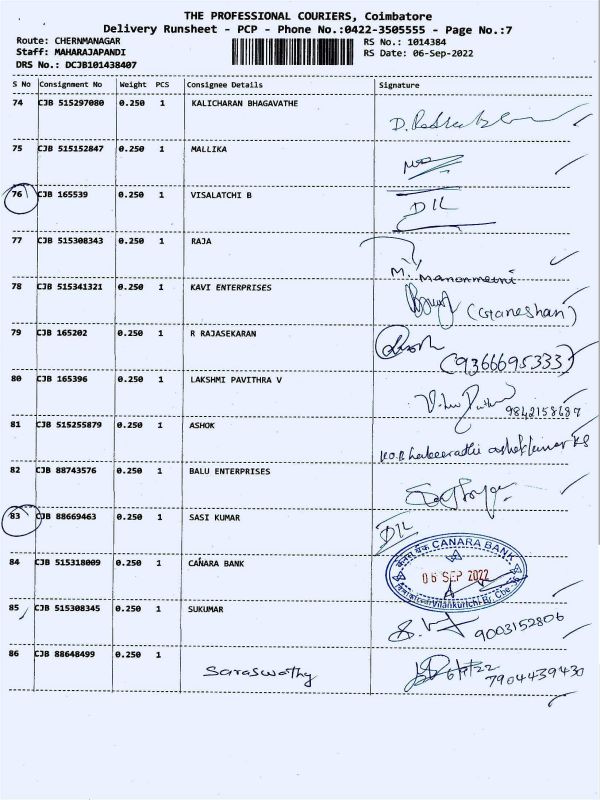 THE PROFESSIONAL COURIERS, Coimbatore
Delivery Runsheet - PCP - Phone No.:0422-3505555 - Page No.:7
Route: CHERNMANAGAR
RS No.: 1014384
Staff: MAHARAJAPANDI
RS Date: 06-Sep-2022
DRS No.: DCJB101438407
S No Consignment No Weight PCS Consignee Details Signature
74 CJB 515297080 0.250 1 KALICHARAN BHAGAVATHE
75 CJB 515152847 0.250 1 MALLIKA
76 CJB 165539 0.250 1 VISALATCHI B DIL
77 CJB 515308343 0.250 1 RAJA
M. Manonmani
78 CJB 515341321 0.250 1 KAVI ENTERPRISES (Ganeshan)
79 CJB 165202 0.250 1 R RAJASEKARAN
(9366695333)
80 CJB 165396 0.250 1 LAKSHMI PAVITHRA V
9842158687
81 CJB 515255879 0.250 1 ASHOK
ashokkumar KS
82 CJB 88743576 0.250 1 BALU ENTERPRISES
83 CJB 88669463 0.250 1 SASI KUMAR DIL
CANARA BANK
84 CJB 515318009 0.250 1 CANARA BANK 06 SEP 2022
85 CJB 515308345 0.250 1 SUKUMAR
9003152806
86 CJB 88648499 0.250 1
Saraswathy
7904439430